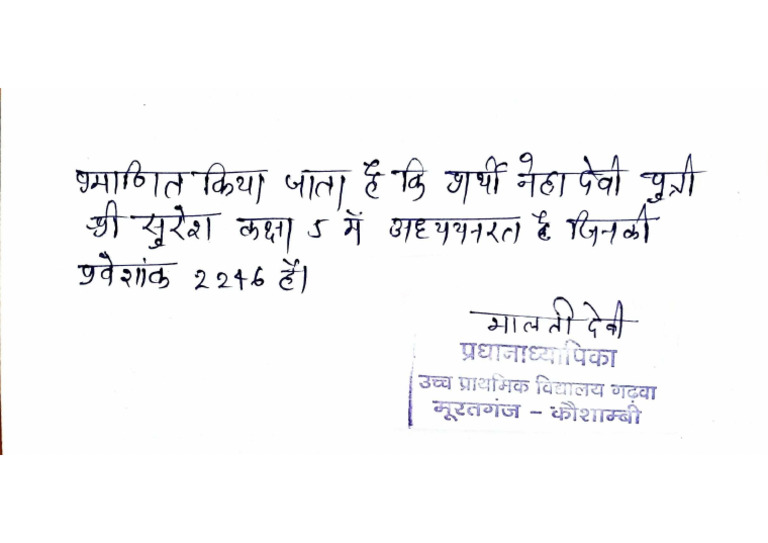 प्रमाणित किया जाता है कि प्रार्थी नेहा देवी पुत्री
श्री सुरेश कक्षा 5 में अध्ययनरत है जिनकी
प्रवेशांक 2246 है।
मालती देवी
प्रधानाध्यापिका
उच्च प्राथमिक विद्यालय गढ़वा
मूरतगंज - कौशाम्बी